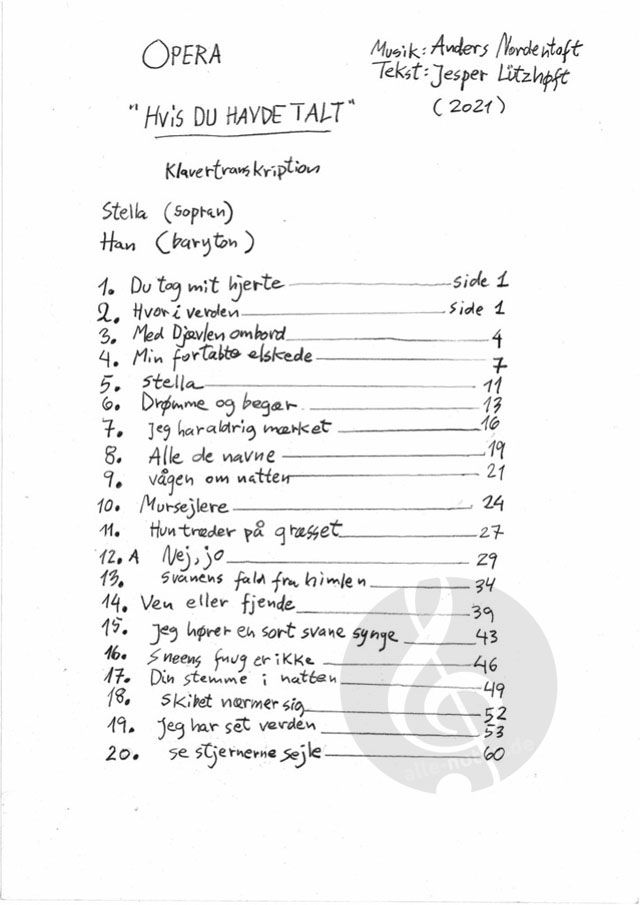 OPERA
Musik: Anders Nordentoft
Tekst: Jesper Lützhøft
(2021)
"HVIS DU HAVDE TALT"
Klavertranskription
Stella (sopran)
Han (baryton)
1. Du tog mit hjerte side 1
2. Hvor i verden side 1
3. Med Djævlen ombord 4
4. Min fortabte elskede 7
5. Stella 11
6. Drømme og begær 13
7. Jeg har aldrig mærket 16
8. Alle de navne 19
9. vågen om natten 21
10. Mursejlere 24
11. Hun træder på græsset 27
12. A Nej, jo 29
13. Svanens fald fra himlen 34
14. Ven eller fjende 39
15. Jeg hører en sort svane synge 43
16. Sneens fnug er ikke 46
17. Din stemme i natten 49
18. Skibet nærmer sig 52
19. Jeg har set verden 53
20. se stjernerne sejle 60
alle-noten.de